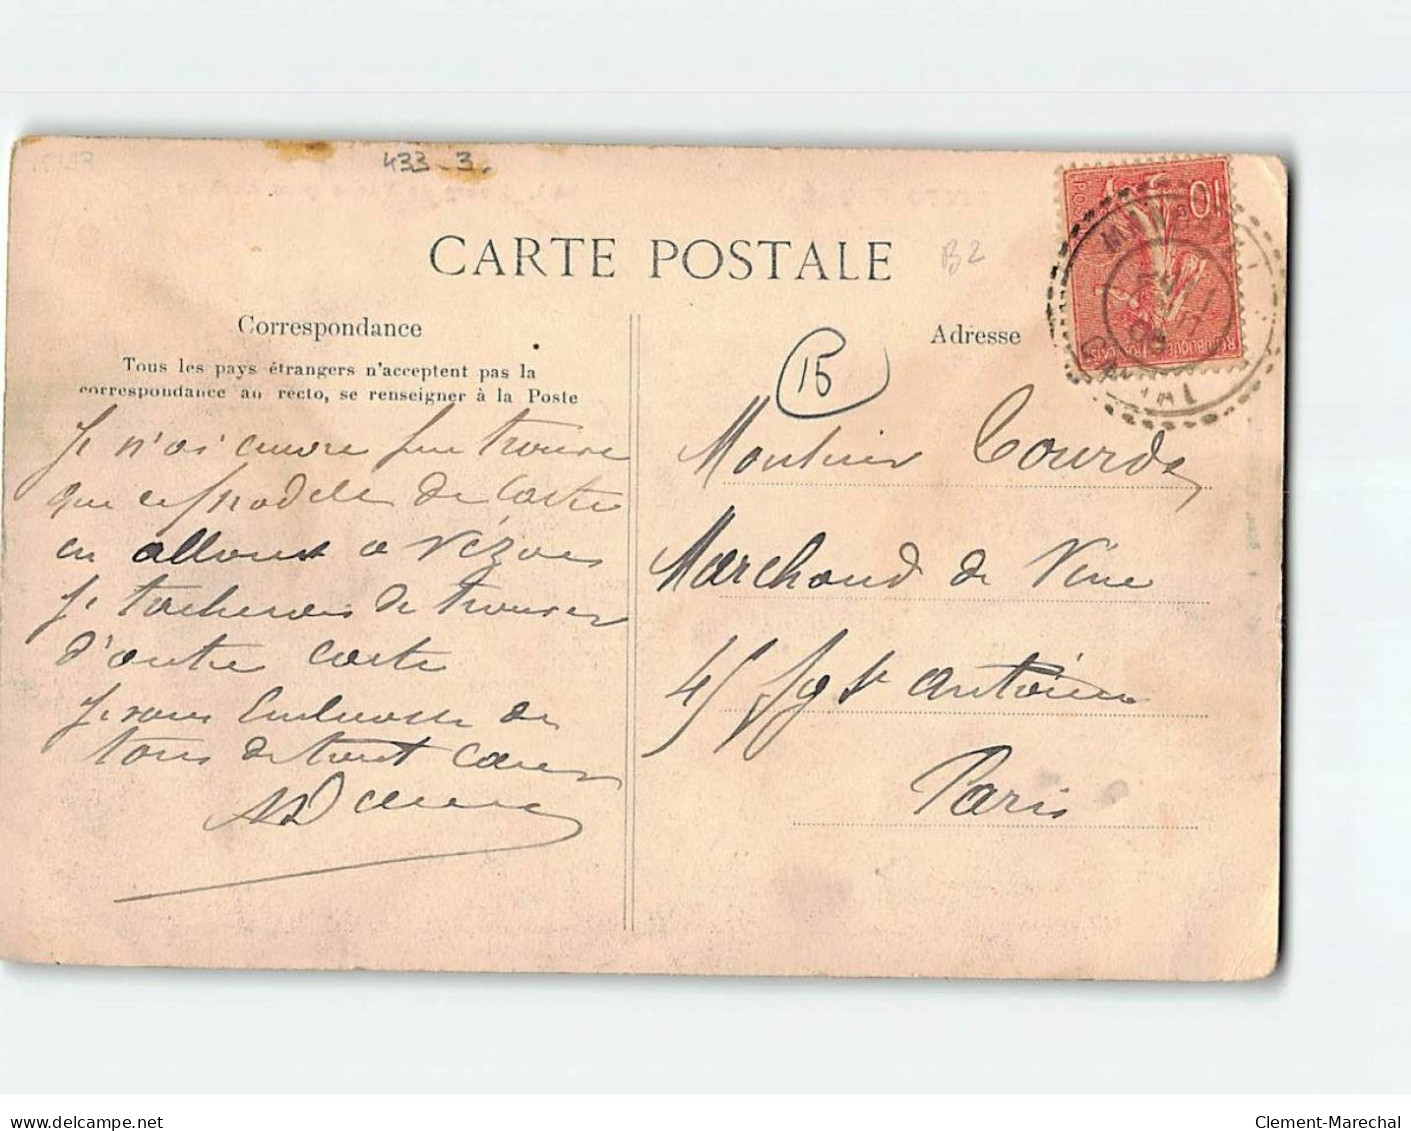 433 3.
CARTE POSTALE
B2
10
Correspondance
Adresse
Tous les pays étrangers n'acceptent pas la
correspondance au recto, se renseigner à la Poste
15
Je n'ai encore pu trouver
que ce modele de Carte
en allant a Vézou
Je tacherais de trouver
d'autre carte
Je vous Embrasse de
tous de tout Cœur
Monsieur Lourde
Marchand de Vins
45 fg St Antoine
Paris
www.delcampe.net
Clement-Marechal